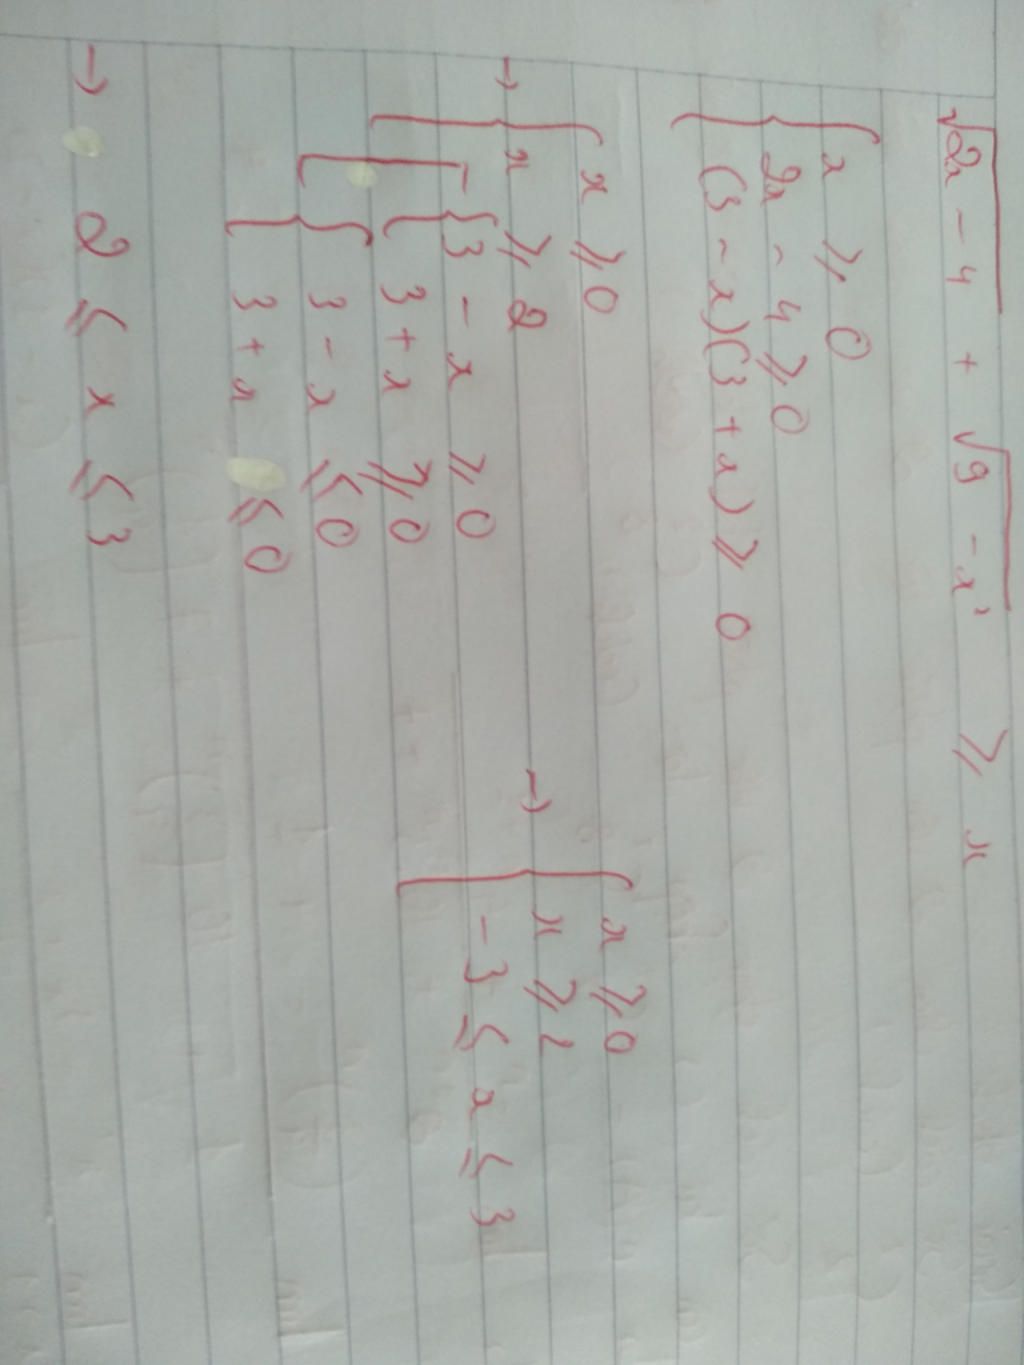 √2x - 4 + √9 - x² ⩾ x
{ x ⩾ 0
2x - 4 ⩾ 0
(3 - x)(3 + x) ⩾ 0
→ { x ⩾ 0
x ⩾ 2
[ { 3 - x ⩾ 0
3 + x ⩾ 0
{ 3 - x ⩽ 0
3 + x ⩽ 0
→ { x ⩾ 0
x ⩾ 2
-3 ⩽ x ⩽ 3
→ 2 ⩽ x ⩽ 3